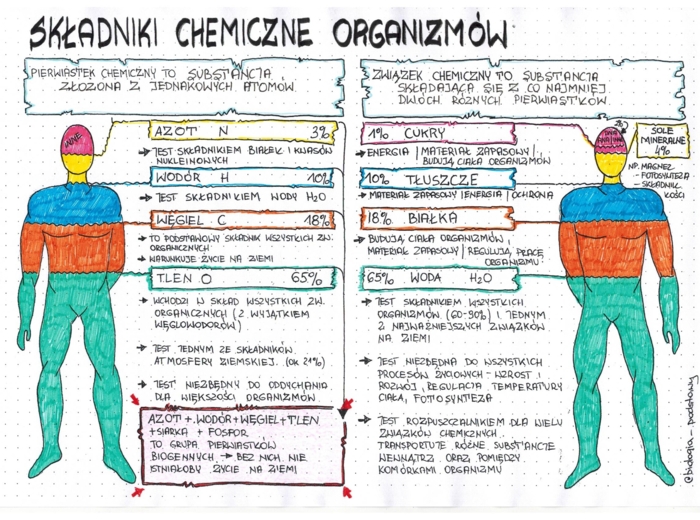 SKŁADNIKI CHEMICZNE ORGANIZMÓW
PIERWIASTEK CHEMICZNY TO SUBSTANCJA
ZŁOŻONA Z JEDNAKOWYCH ATOMÓW.
INNE
AZOT N 3%
→ JEST SKŁADNIKIEM BIAŁEK I KWASÓW
NUKLEINOWYCH
WODÓR H 10%
→ JEST SKŁADNIKIEM WODY H₂O
WĘGIEL C 18%
→ TO PODSTAWOWY SKŁADNIK WSZYSTKICH ZW.
ORGANICZNYCH
→ WARUNKUJE ŻYCIE NA ZIEMI
TLEN O 65%
→ WCHODZI W SKŁAD WSZYSTKICH ZW.
ORGANICZNYCH (Z WYJĄTKIEM
WĘGLOWODORÓW)
→ JEST JEDNYM ZE SKŁADNIKÓW
ATMOSFERY ZIEMSKIEJ. (OK 21%)
→ JEST NIEZBĘDNY DO ODDYCHANIA
DLA WIĘKSZOŚCI ORGANIZMÓW
AZOT + WODÓR + WĘGIEL + TLEN
+ SIARKA + FOSFOR
TO GRUPA PIERWIASTKÓW
BIOGENNYCH → BEZ NICH NIE
ISTNIAŁOBY ŻYCIE NA ZIEMI
ZWIĄZEK CHEMICZNY TO SUBSTANCJA
SKŁADAJĄCA SIĘ Z CO NAJMNIEJ
DWÓCH RÓŻNYCH PIERWIASTKÓW.
1% CUKRY
→ ENERGIA / MATERIAŁ ZAPASOWY /
BUDUJĄ CIAŁA ORGANIZMÓW
10% TŁUSZCZE
→ MATERIAŁ ZAPASOWY / ENERGIA / OCHRONA
18% BIAŁKA
→ BUDUJĄ CIAŁA ORGANIZMÓW,
MATERIAŁ ZAPASOWY / REGULUJĄ PRACĘ
ORGANIZMU
65% WODA H₂O
→ JEST SKŁADNIKIEM WSZYSTKICH
ORGANIZMÓW (60-90%) I JEDNYM
Z NAJWAŻNIEJSZYCH ZWIĄZKÓW
NA ZIEMI
→ JEST NIEZBĘDNA DO WSZYSTKICH
PROCESÓW ŻYCIOWYCH - WZROST I
ROZWÓJ, REGULACJA TEMPERATURY
CIAŁA, FOTOSYNTEZA
→ JEST ROZPUSZCZALNIKIEM DLA WIELU
ZWIĄZKÓW CHEMICZNYCH.
TRANSPORTUJE RÓŻNE SUBSTANCJE
WEWNĄTRZ ORAZ POMIĘDZY
KOMÓRKAMI ORGANIZMU
SOLE
MINERALNE
4%
NP. MAGNEZ
- FOTOSYNTEZA
- SKŁADNIK
KOŚCI